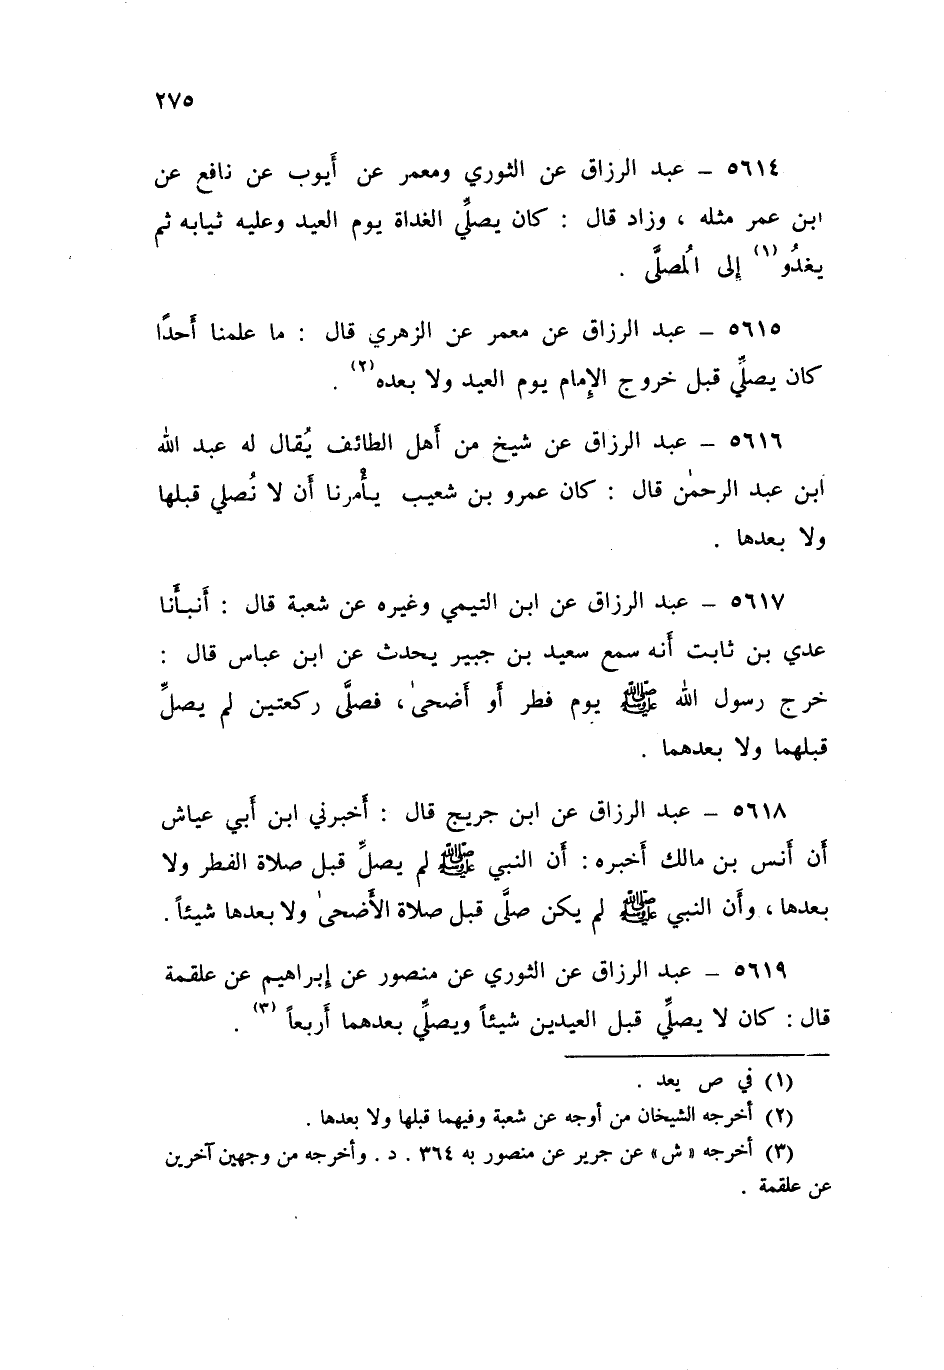 ٢٧٥
٥٦١٤ – عبد الرزاق عن الثوري ومعمر عن أَيوب عن نافع عن
ابن عمر مثله ، وزاد قال : كان يصلِّي الغداة يوم العيد وعليه ثيابه ثم
يغدُو (١) إلى المُصلَّى .
٥٦١٥ – عبد الرزاق عن معمر عن الزهري قال : ما علمنا أَحدًا
كان يصلِّي قبل خروج الإِمام يوم العيد ولا بعده (٢) .
٥٦١٦ – عبد الرزاق عن شيخ من أَهل الطائف يُقال له عبد الله
ابن عبد الرحمٰن قال : كان عمرو بن شعيب يأْمرنا أَن لا نُصلي قبلها
ولا بعدها .
٥٦١٧ – عبد الرزاق عن ابن التيمي وغيره عن شعبة قال : أَنبأَنا
عدي بن ثابت أَنه سمع سعيد بن جبير يحدث عن ابن عباس قال :
خرج رسول الله ﷺ يوم فطر أَو أَضحىٰ ، فصلَّى ركعتين لم يصلِّ
قبلهما ولا بعدهما .
٥٦١٨ – عبد الرزاق عن ابن جريج قال : أَخبرني ابن أَبي عياش
أَن أَنس بن مالك أَخبره : أَن النبي ﷺ لم يصلِّ قبل صلاة الفطر ولا
بعدها ، وأَن النبي ﷺ لم يكن صلَّى قبل صلاة الأَضحىٰ ولا بعدها شيئاً .
٥٦١٩ – عبد الرزاق عن الثوري عن منصور عن إبراهيم عن علقمة
قال : كان لا يصلِّي قبل العيدين شيئاً ويصلِّي بعدهما أَربعاً (٣) .
(١) في ص يعد .
(٢) أخرجه الشيخان من أوجه عن شعبة وفيهما قبلها ولا بعدها .
(٣) أخرجه «ش» عن جرير عن منصور به ٣٦٤ . د . وأخرجه من وجهين آخرين
عن علقمة .